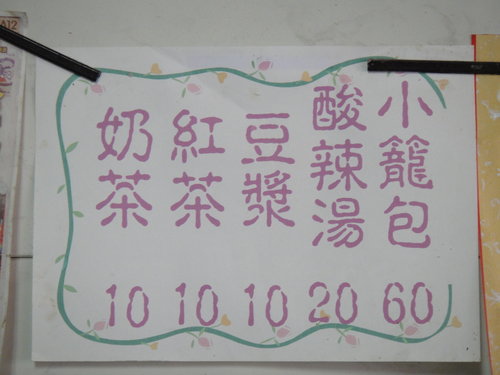 小籠包 60
酸辣湯 20
豆漿 10
紅茶 10
奶茶 10